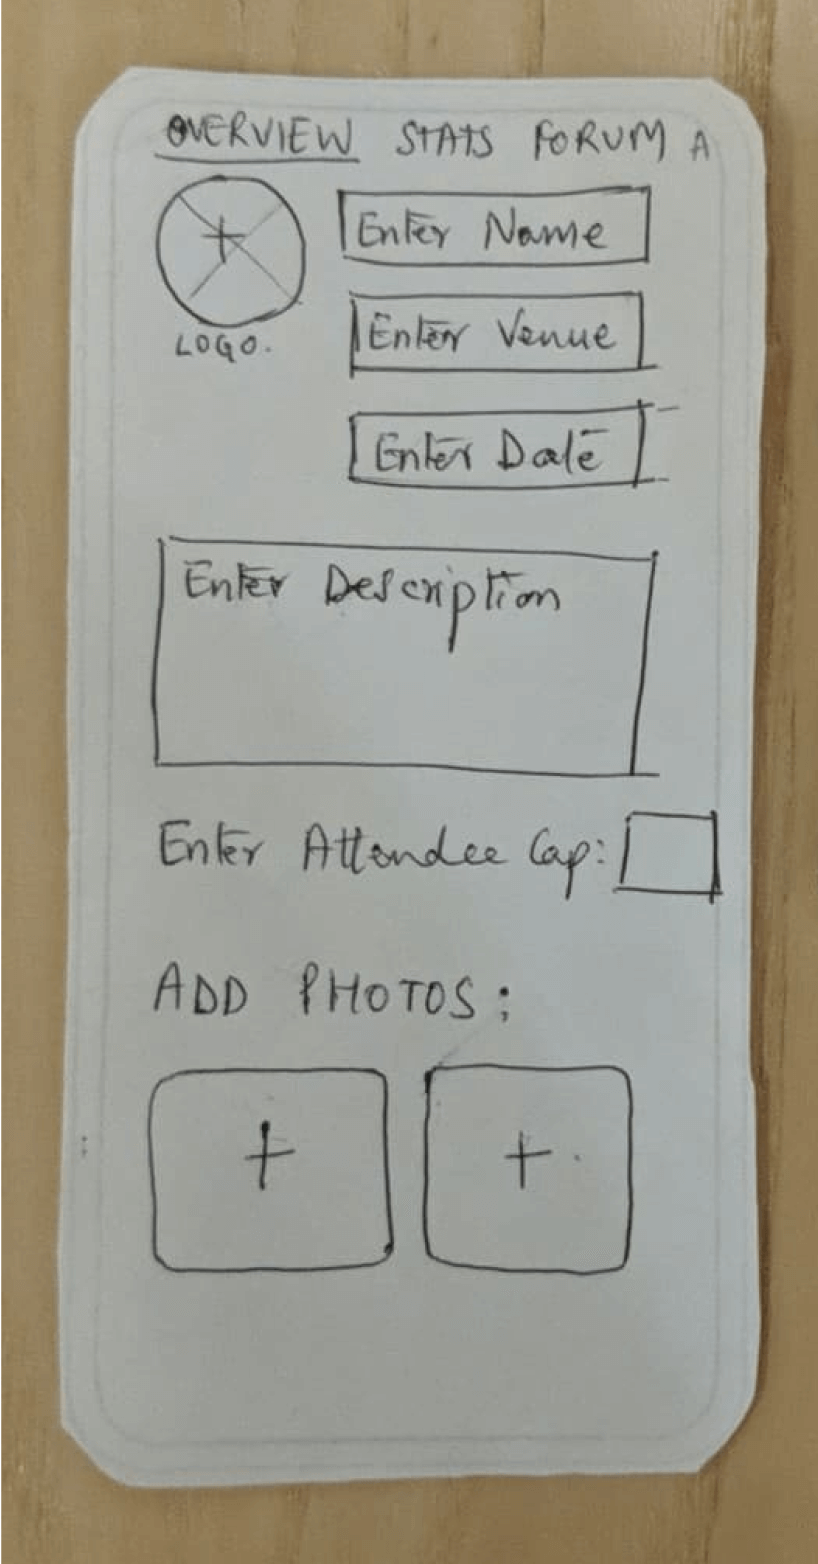 OVERVIEW STATS FORUM A
+
LOGO.
Enter Name
Enter Venue
Enter Date
Enter Description
Enter Attendee Cap:
ADD PHOTOS:
+ +